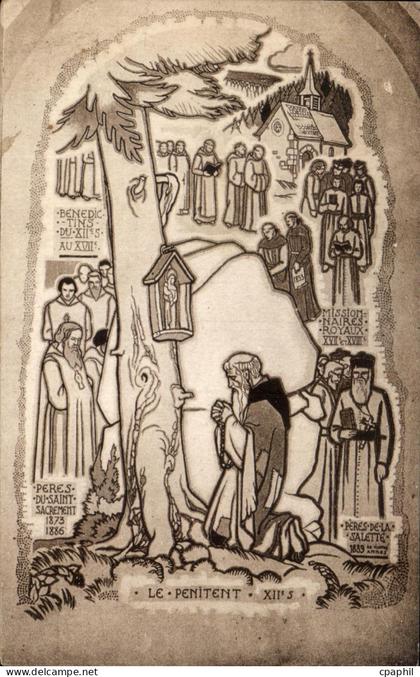 BENEDIC
-TINS
DU·XIIᵉS
AU XVIIᵉ·
MISSION
-NAIRES
ROYAUX
XVIIᵉ·XVIIIᵉ
·PERES·
·DU·SAINT·
SACREMENT
1873
1886
PÈRES·DE·LA
SALETTE
1889
· LE · PENITENT · XIIᵉS ·
cpaphil